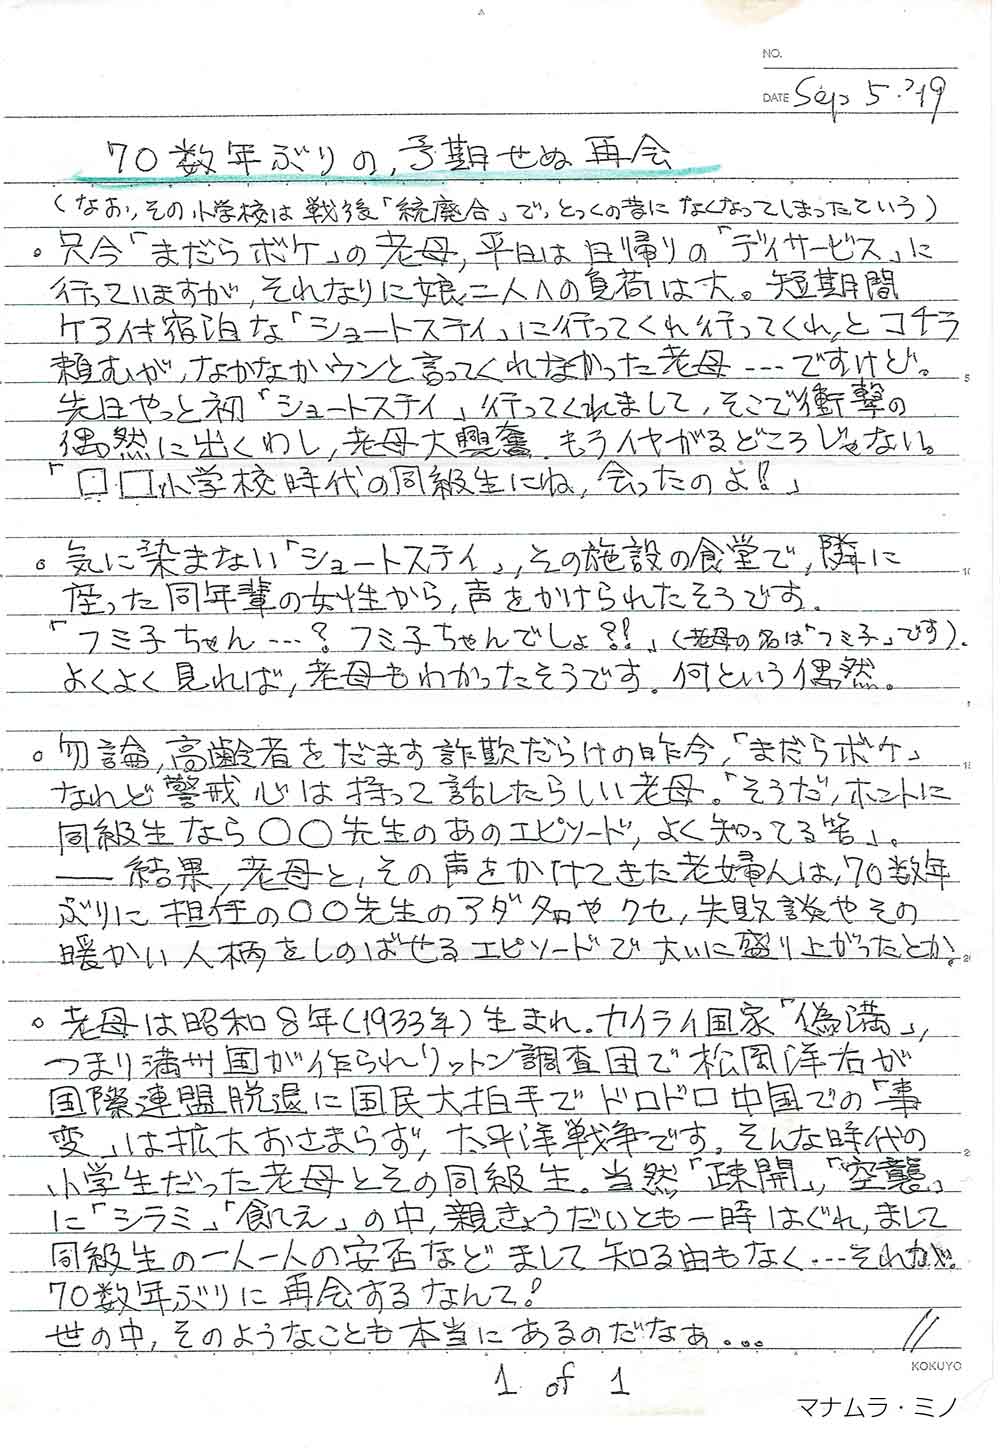 NO.
DATE Sep 5.'19
70数年ぶりの,予期せぬ再会
(なお,その小学校は戦後「統廃合」で,とっくの昔になくなってしまったという)
○只今「まだらボケ」の老母,平日は日帰りの「デイサービス」に
行っていますが,それなりに娘二人への負荷は大。短期間
ケア付宿泊な「ショートステイ」に行ってくれ行ってくれ,とコチラ
頼むが,なかなかウンと言ってくれなかった老母---ですけど。
先日やっと初「ショートステイ」行ってくれまして,そこで衝撃の
偶然に出くわし,老母大興奮.もうイヤがるどころじゃない。
「□□小学校時代の同級生にね,会ったのよ!」
○気に染まない「ショートステイ」,その施設の食堂で,隣に
座った同年輩の女性から,声をかけられたそうです.
「フミ子ちゃん---?フミ子ちゃんでしょ?!」(老母の名は「フミ子」です).
よくよく見れば,老母もわかったそうです.何という偶然。
○勿論,高齢者をだます詐欺だらけの昨今,「まだらボケ」
なれど警戒心は持って話したらしい老母。「そうだ,ホントに
同級生なら〇〇先生のあのエピソード,よく知ってる筈」。
――結果,老母と,その声をかけてきた老婦人は,70数年
ぶりに担任の〇〇先生のアダ名やクセ,失敗談やその
暖かい人柄をしのばせるエピソードで大いに盛り上がったとか.
○老母は昭和8年(1933年)生まれ.カイライ国家「偽満」,
つまり満州国が作られリットン調査団で松岡洋右が
国際連盟脱退に国民大拍手でドロドロ中国での「事
変」は拡大おさまらず,太平洋戦争です.そんな時代の
小学生だった老母とその同級生.当然「疎開」,「空襲」
に「シラミ」「飢え」の中,親きょうだいとも一時はぐれ,まして
同級生の一人一人の安否などまして知る由もなく---それが.
70数年ぶりに再会するなんて!
世の中,そのようなことも本当にあるのだなぁ...
//
KOKUYO
1 of 1
マナムラ・ミノ